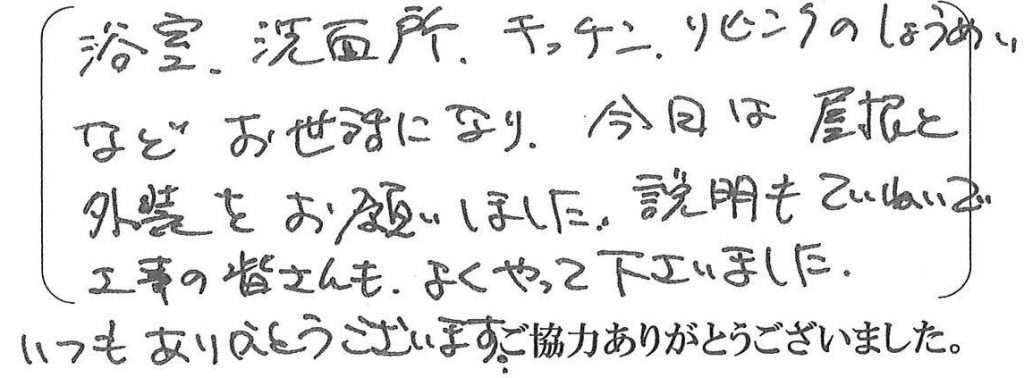 浴室、洗面所、キッチン、リビングのしょうめい
などお世話になり、今回は屋根と
外装をお願いしました。説明もていねいで
工事の皆さんも、よくやって下さいました。
いつもありがとうございます。ご協力ありがとうございました。